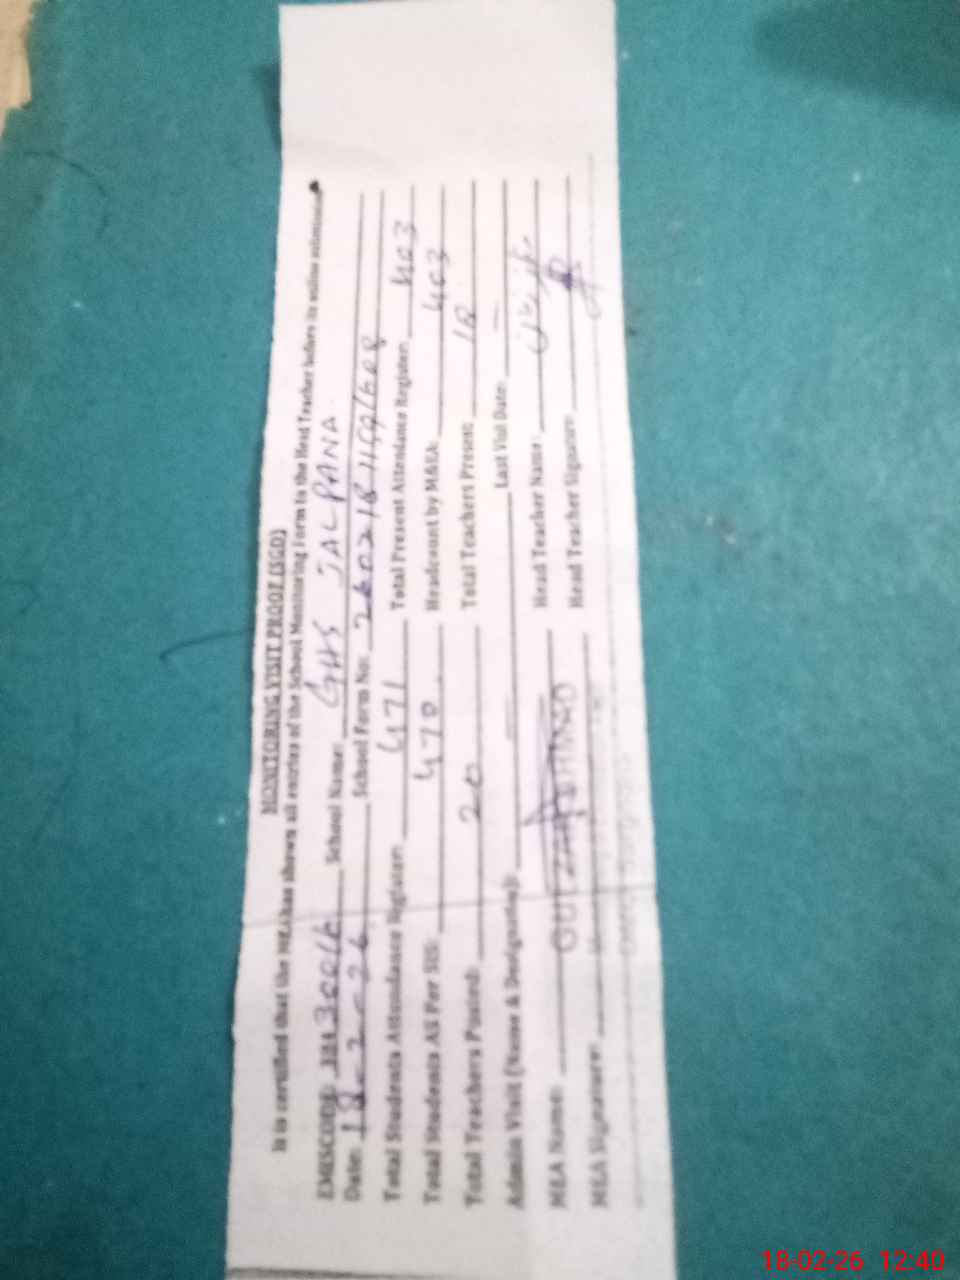 MONITORING VISIT PROOF (SGD)
It is certified that the MEA has shown all entries of the School Monitoring Form to the Head Teacher before its online submission
EMISCODE: School Name: GHS JALPANA
Date: 18-2-26 School Form No:
Total Students Attendance Register: 471 Total Present Attendance Register: 403
Total Students AS Per SIS: 470 Headcount by MEA: 403
Total Teachers Posted: 20 Total Teachers Present: 18
Admin Visit (Name & Designation): Last Visit Date: —
MEA Name: Head Teacher Name:
MEA Signature: Head Teacher Signature:
18-02-26 12:40